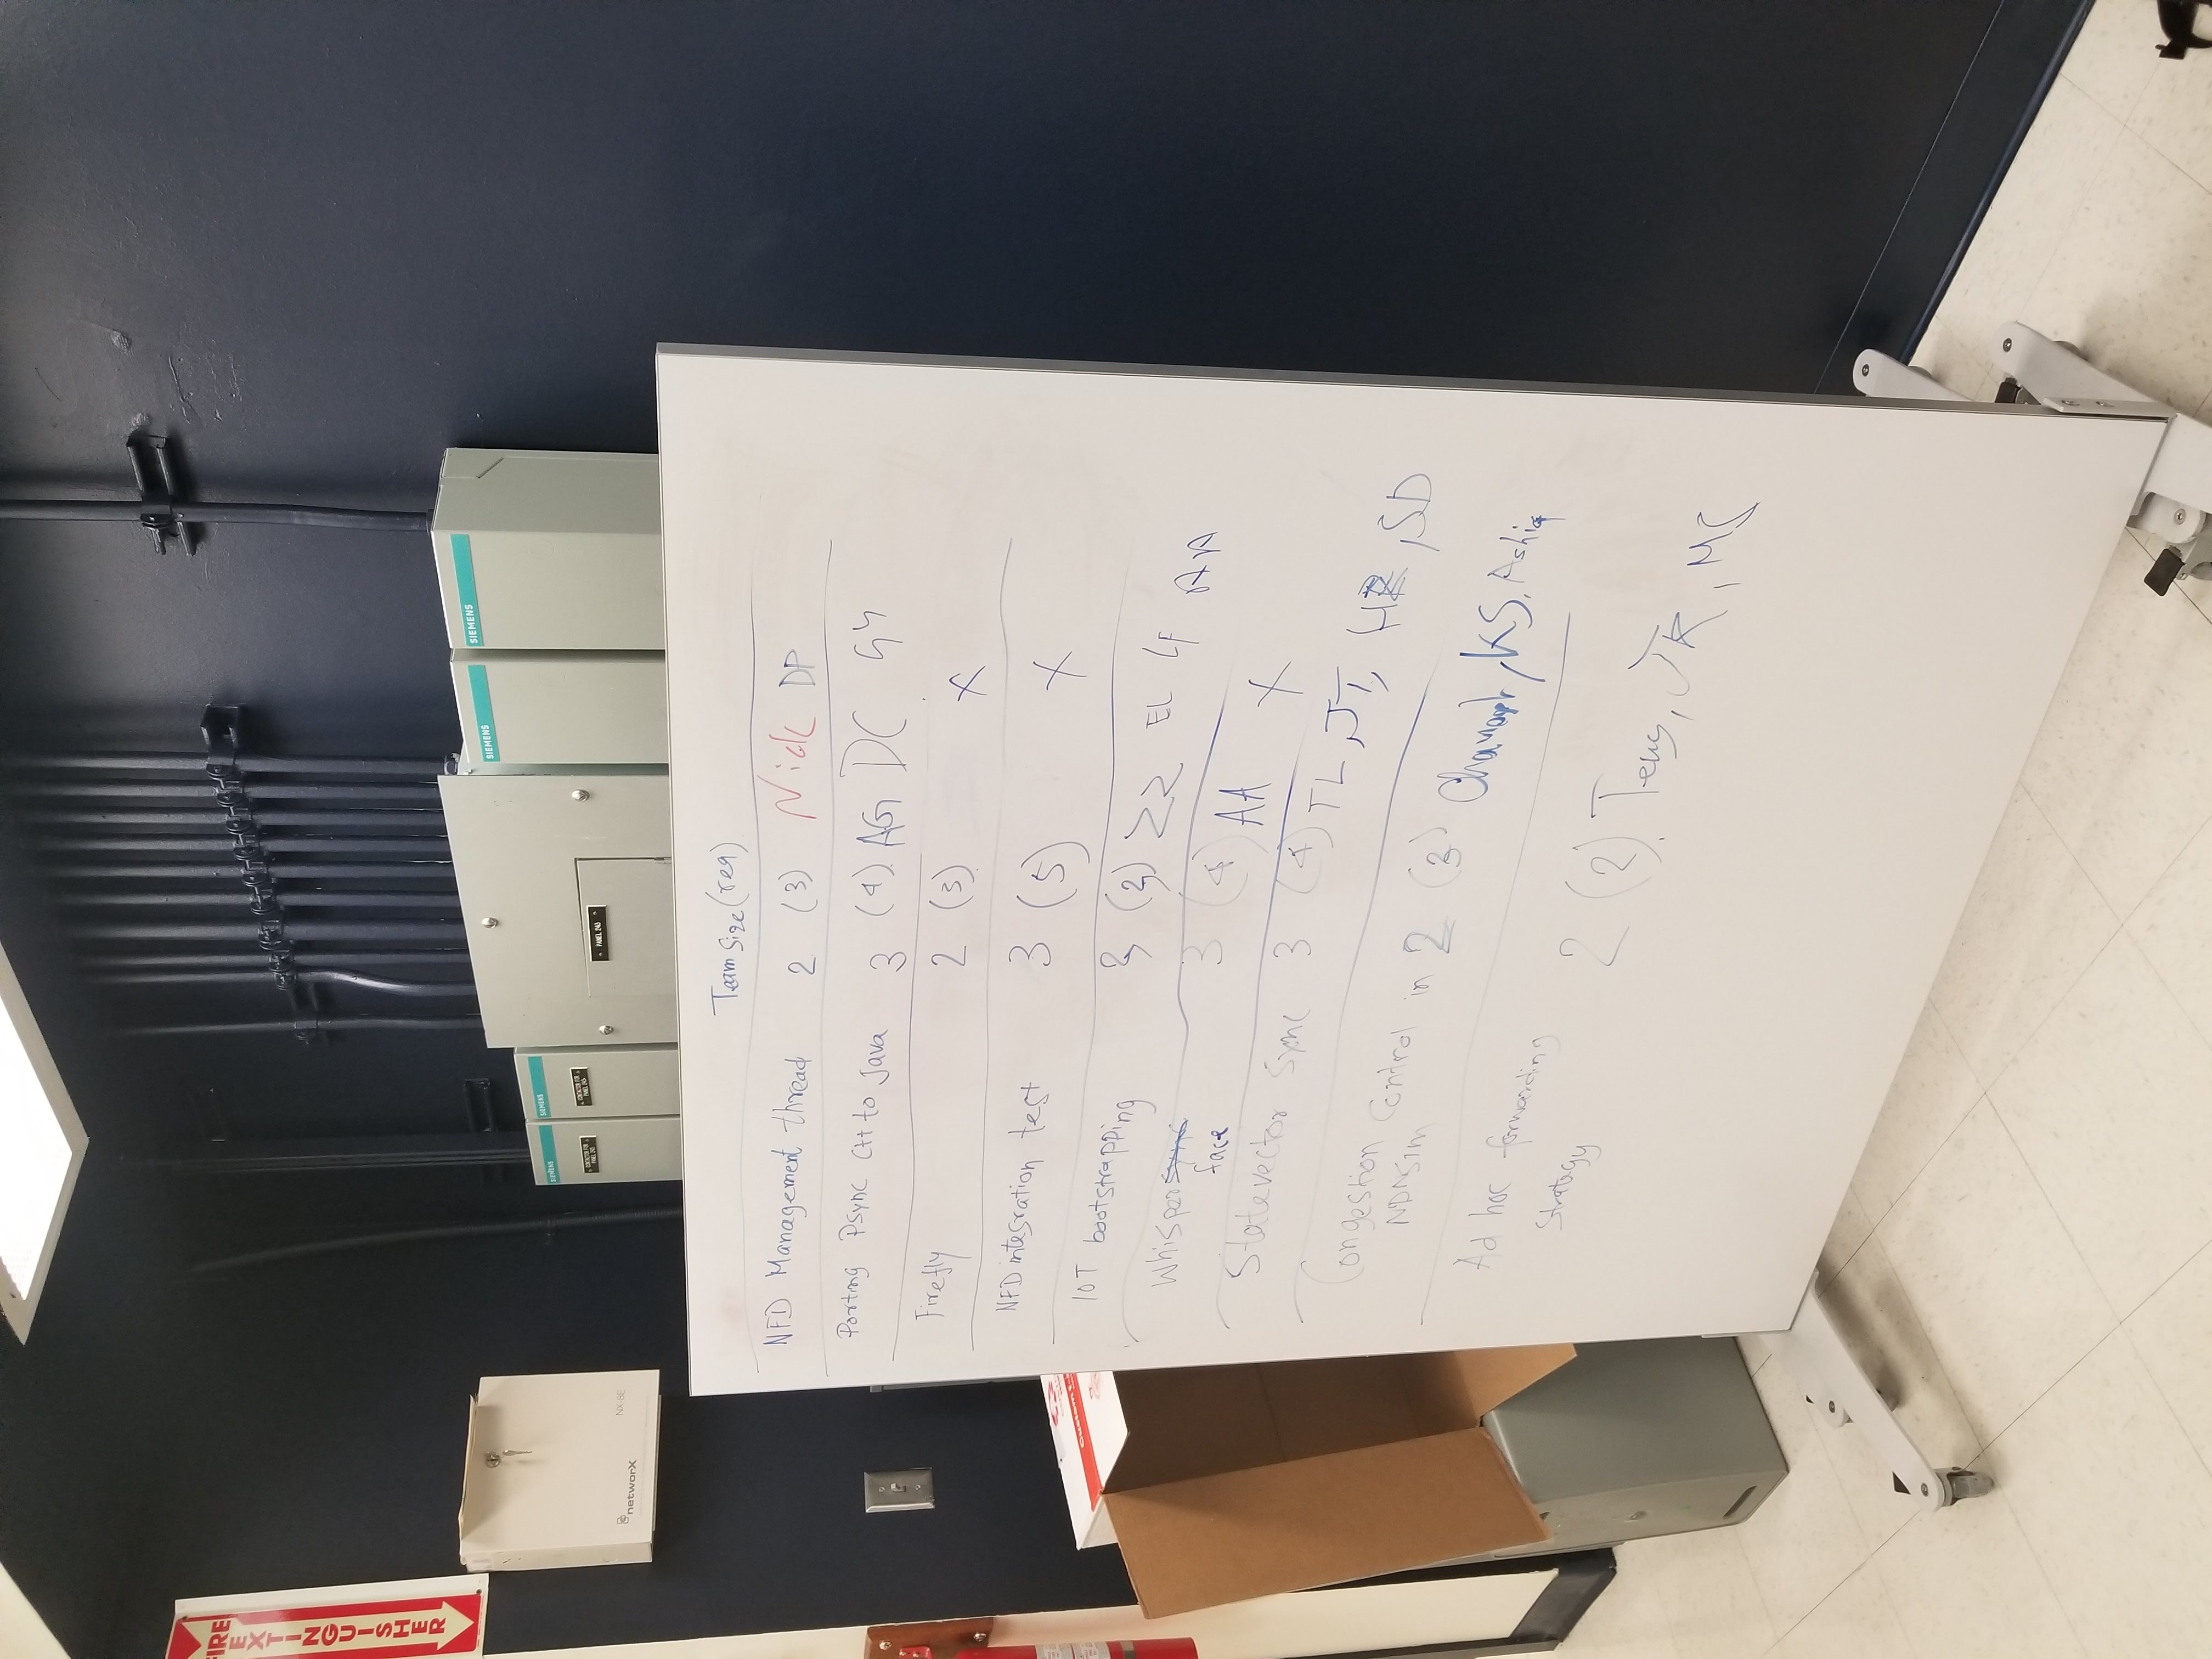 FIRE
EXTINGUISHER
SIEMENS
SIEMENS
SIEMENS
SIEMENS
CONTACTOR FOR
PANEL 243
CONTACTOR FOR
PANEL 243
PANEL 243
networX NX-8E
Team Size (req)
NFD Management thread 2 (3) Nick DP
Porting PSync C++ to Java 3 (4) AG DC
Firefly 2 (3) X
NFD integration test 3 (5) X
IOT bootstrapping 3 (3) ZZ EL LF AA
Whisper
face 3 (4) AA X
Statevector Sync 3 (4) TL, JT, HR, SD
Congestion Control in 2 (3) KS, Ashiq
NDNSim
Ad hoc forwarding
Strategy 2 (2) Teng, JR, MS